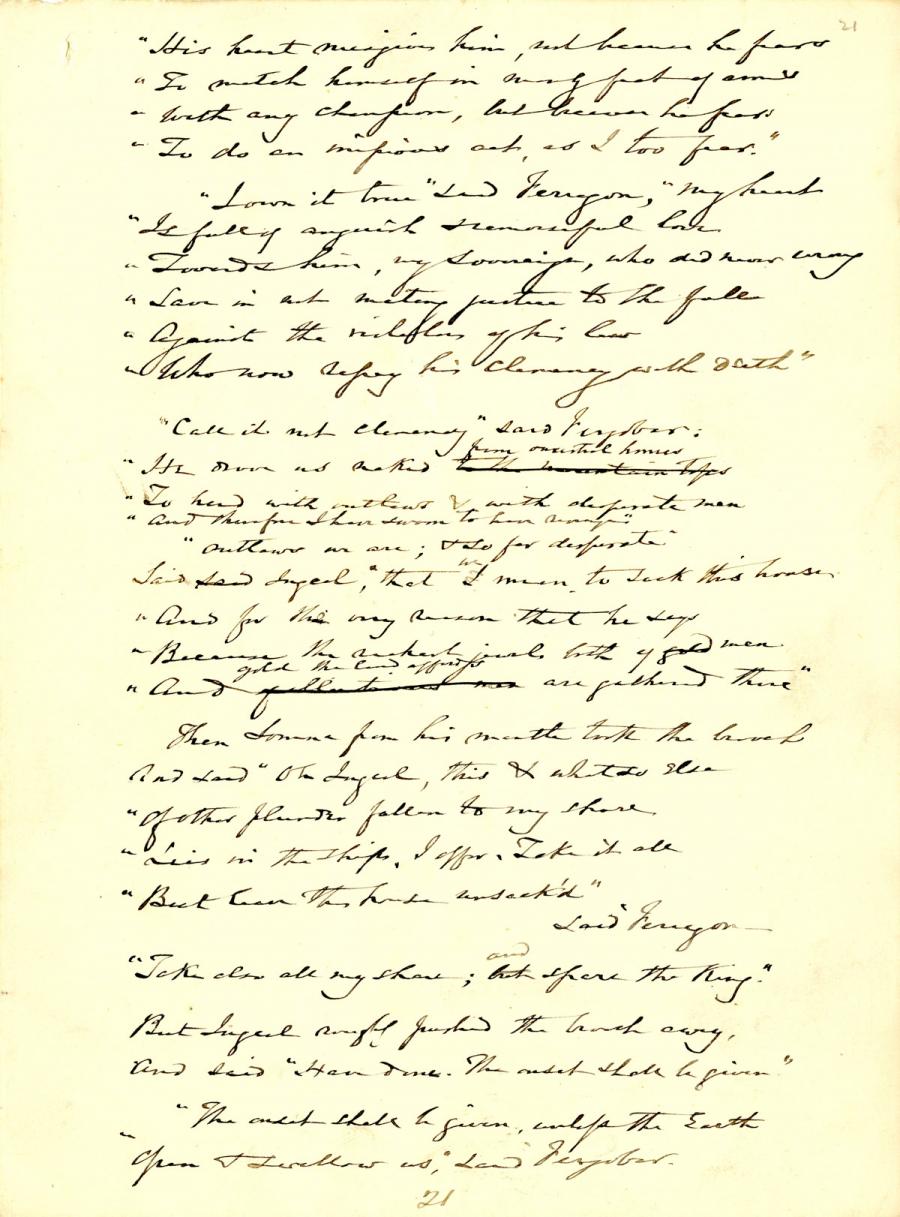 21
"His heart misgives him, not because he fears
"To match himself in manly feat of arms
"With any champion, but because he fears
"To do an impious act, as I too fear."
"I own it true" said Ferragon, "my heart
"Is full of anguish & remorseful love
"Towards him, my Sovereign, who did never wrong
"Save in not meting justice to the full
"Against the violators of his law
"Who now repay his clemency with death"
"Call it not clemency" said Fergobar:
from ancestral homes
"He drove us naked to the mountain tops
"To herd with outlaws & with desperate men
"And therefore I have sworn to have revenge".
"outlaws we are; & so far desperate"
we
Said said Ingcel, "that I mean to sack this house
"And for the very reason that he says
"Because the richest jewels both of gold men
gold the land affords
"And are gathered there"
Then Lomna from his mantle took the brooch
And said "Oh Ingcel, this & whatso else
"Of other plunder fallen to my share
"Lies in the ships, I offer. Take it all
"But leave this house unsack'd"
Said Ferragon
and
"Take also all my share; but spare the King".
But Ingcel roughly pushed the brooch away,
And said "Have done. The onset shall be given"
"The onset shall be given, unless the Earth
"Open & swallow us", said Fergobar.
21